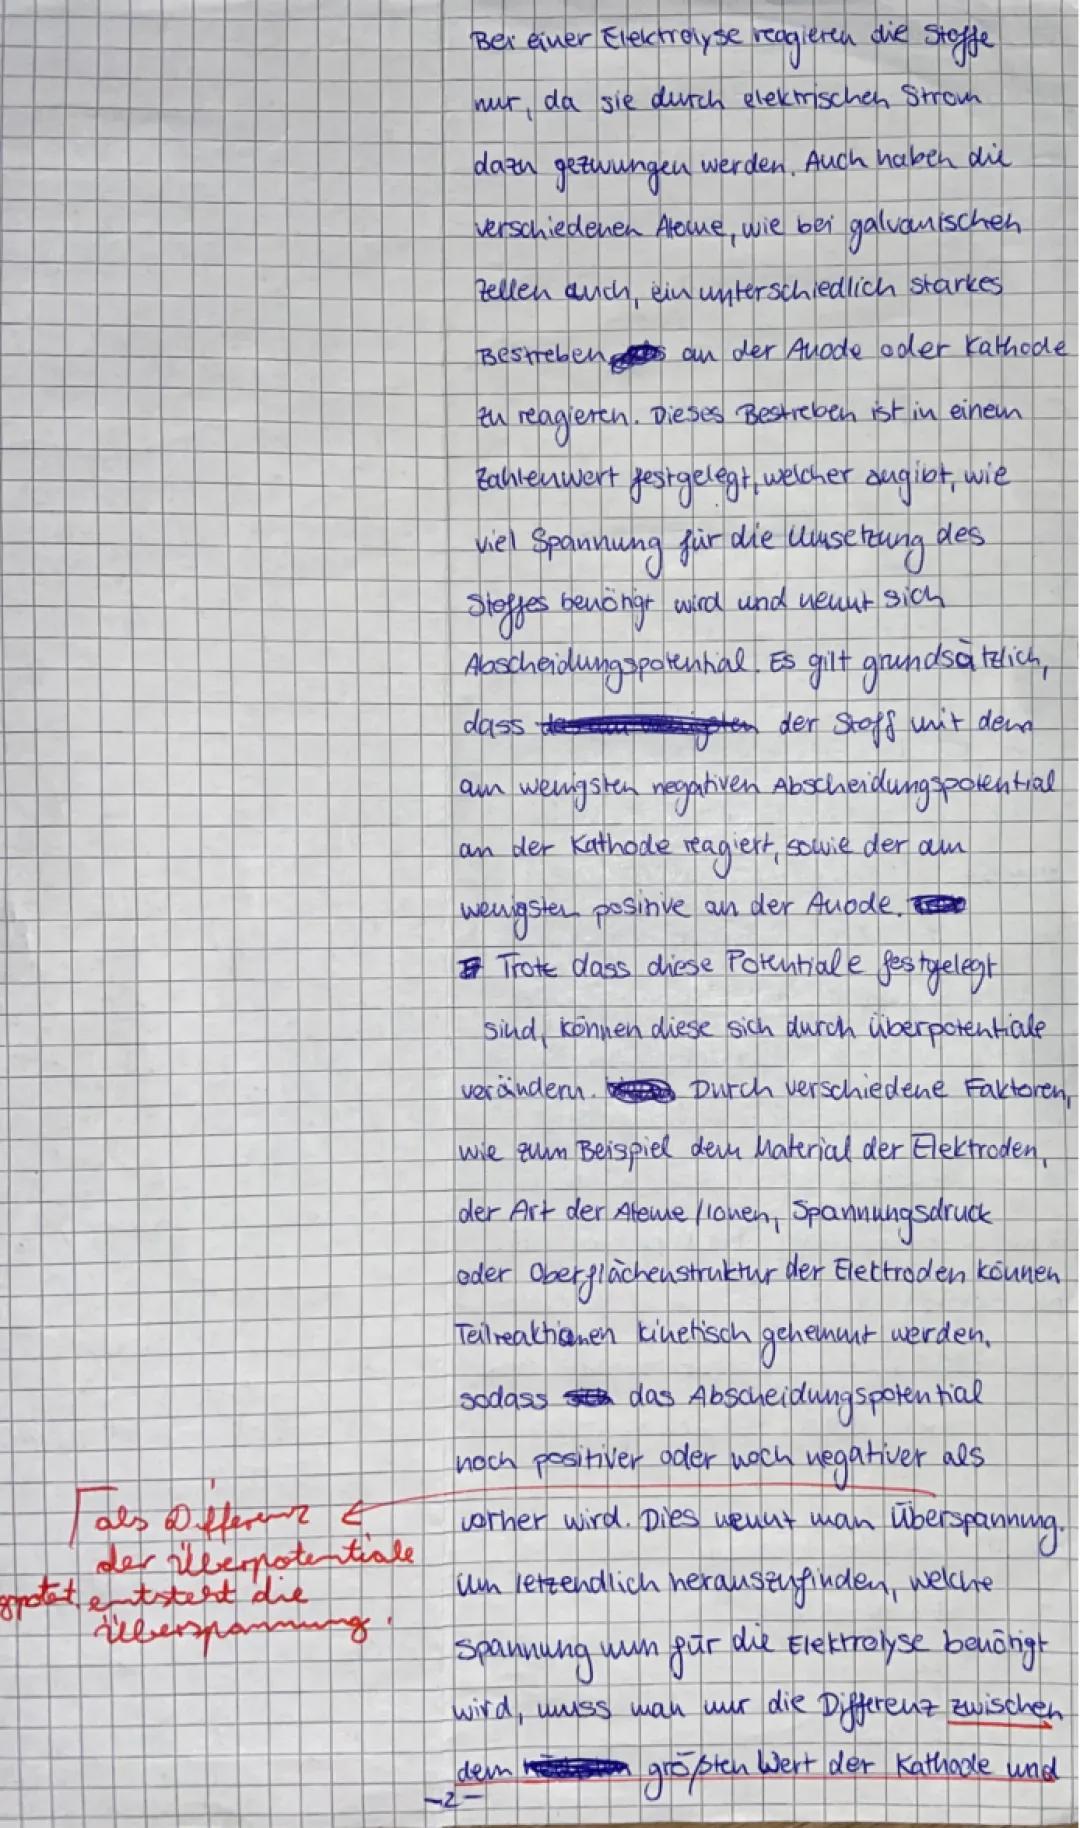 Bei einer Elektrolyse reagieren die Stoffe
nur, da sie durch elektrischen Strom
dazu gezwungen werden. Auch haben die
verschiedenen Atome, wie bei galvanischen
Zellen auch, ein unterschiedlich starkes
Bestreben an der Anode oder Kathode
zu reagieren. Dieses Bestreben ist in einem
Zahlenwert festgelegt, welcher angibt, wie
viel Spannung für die Umsetzung des
Stoffes benötigt wird und nennt sich
Abscheidungspotential. Es gilt grundsätzlich,
dass der Stoff mit dem
am wenigsten negativen Abscheidungspotential
an der Kathode reagiert, sowie der am
wenigsten positive an der Anode.
Trotz dass diese Potentiale festgelegt
sind, können diese sich durch Überpotentiale
verändern. Durch verschiedene Faktoren,
wie zum Beispiel dem Material der Elektroden,
der Art der Atome/Ionen, Spannungsdruck
oder Oberflächenstruktur der Elektroden können
Teilreaktionen kinetisch gehemmt werden,
sodass das Abscheidungspotential
noch positiver oder noch negativer als
vorher wird. Dies nennt man Überspannung.
Um letzendlich herauszufinden, welche
Spannung nun für die Elektrolyse benötigt
wird, muss man nur die Differenz zwischen
dem größten Wert der Kathode und
-2-
als Differenz
der Überpotentiale
entsteht die
Überspannung.